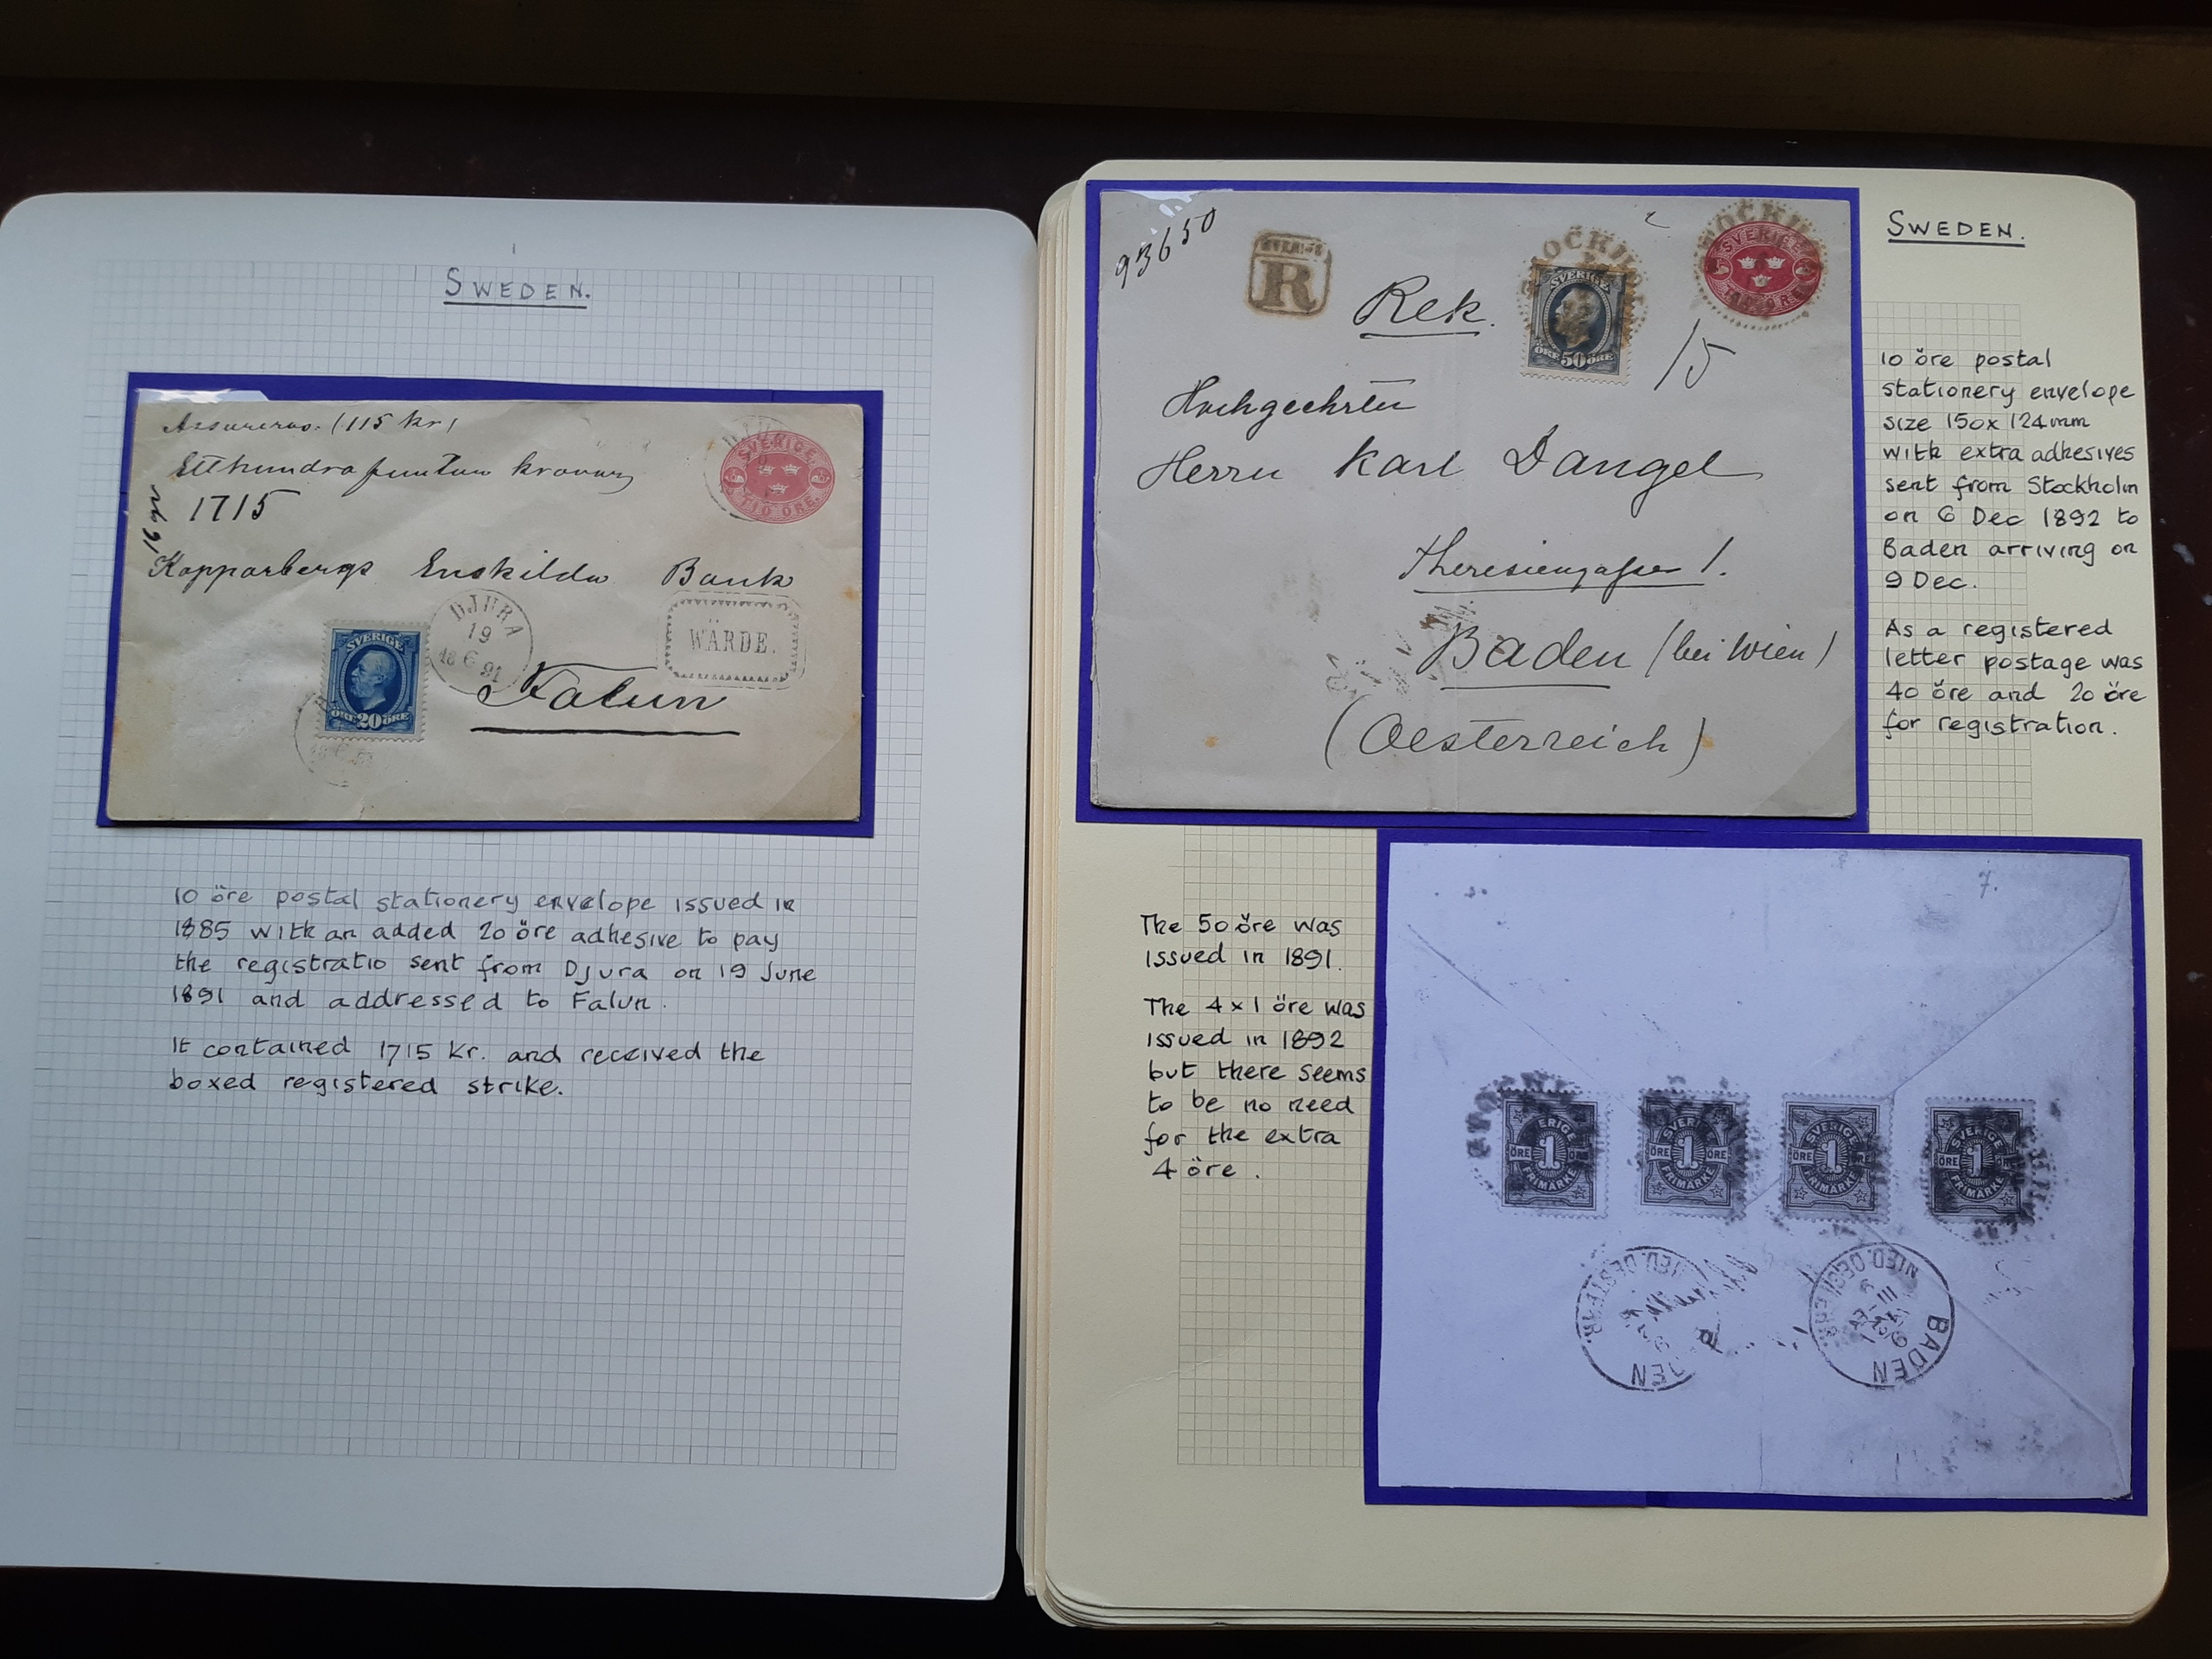 SWEDEN.
(115 kr)
kronor
1715
Kopparbergs Enskilda Bank
SVERIGE
TIO ÖRE
DJURA
19
6
91
WÄRDE.
SVERIGE
ÖRE 20 ÖRE
Falun
10 öre postal stationery envelope issued in
1885 with an added 20 öre adhesive to pay
the registratio sent from Djura on 19 June
1891 and addressed to Falun.
It contained 1715 Kr. and received the
boxed registered strike.
SWEDEN.
93650
R
Rek.
SVERIGE
ÖRE 50 ÖRE
SVERIGE
15
Hochgeehrten
Herrn Karl Dangel
Theresiengasse 1.
Baden (bei Wien)
(Oesterreich)
10 öre postal
stationery envelope
size 150x124mm
with extra adhesives
sent from Stockholm
on 6 Dec 1892 to
Baden arriving on
9 Dec.
As a registered
letter postage was
40 öre and 20 öre
for registration.
The 50 öre was
issued in 1891.
The 4x1 öre was
issued in 1892
but there seems
to be no need
for the extra
4 öre.
7.
SVERIGE
ÖRE 1 ÖRE
FRIMÄRKE
SVERIGE
ÖRE 1 ÖRE
FRIMÄRKE
SVERIGE
ÖRE 1 ÖRE
FRIMÄRKE
SVERIGE
ÖRE 1 ÖRE
FRIMÄRKE
BADEN